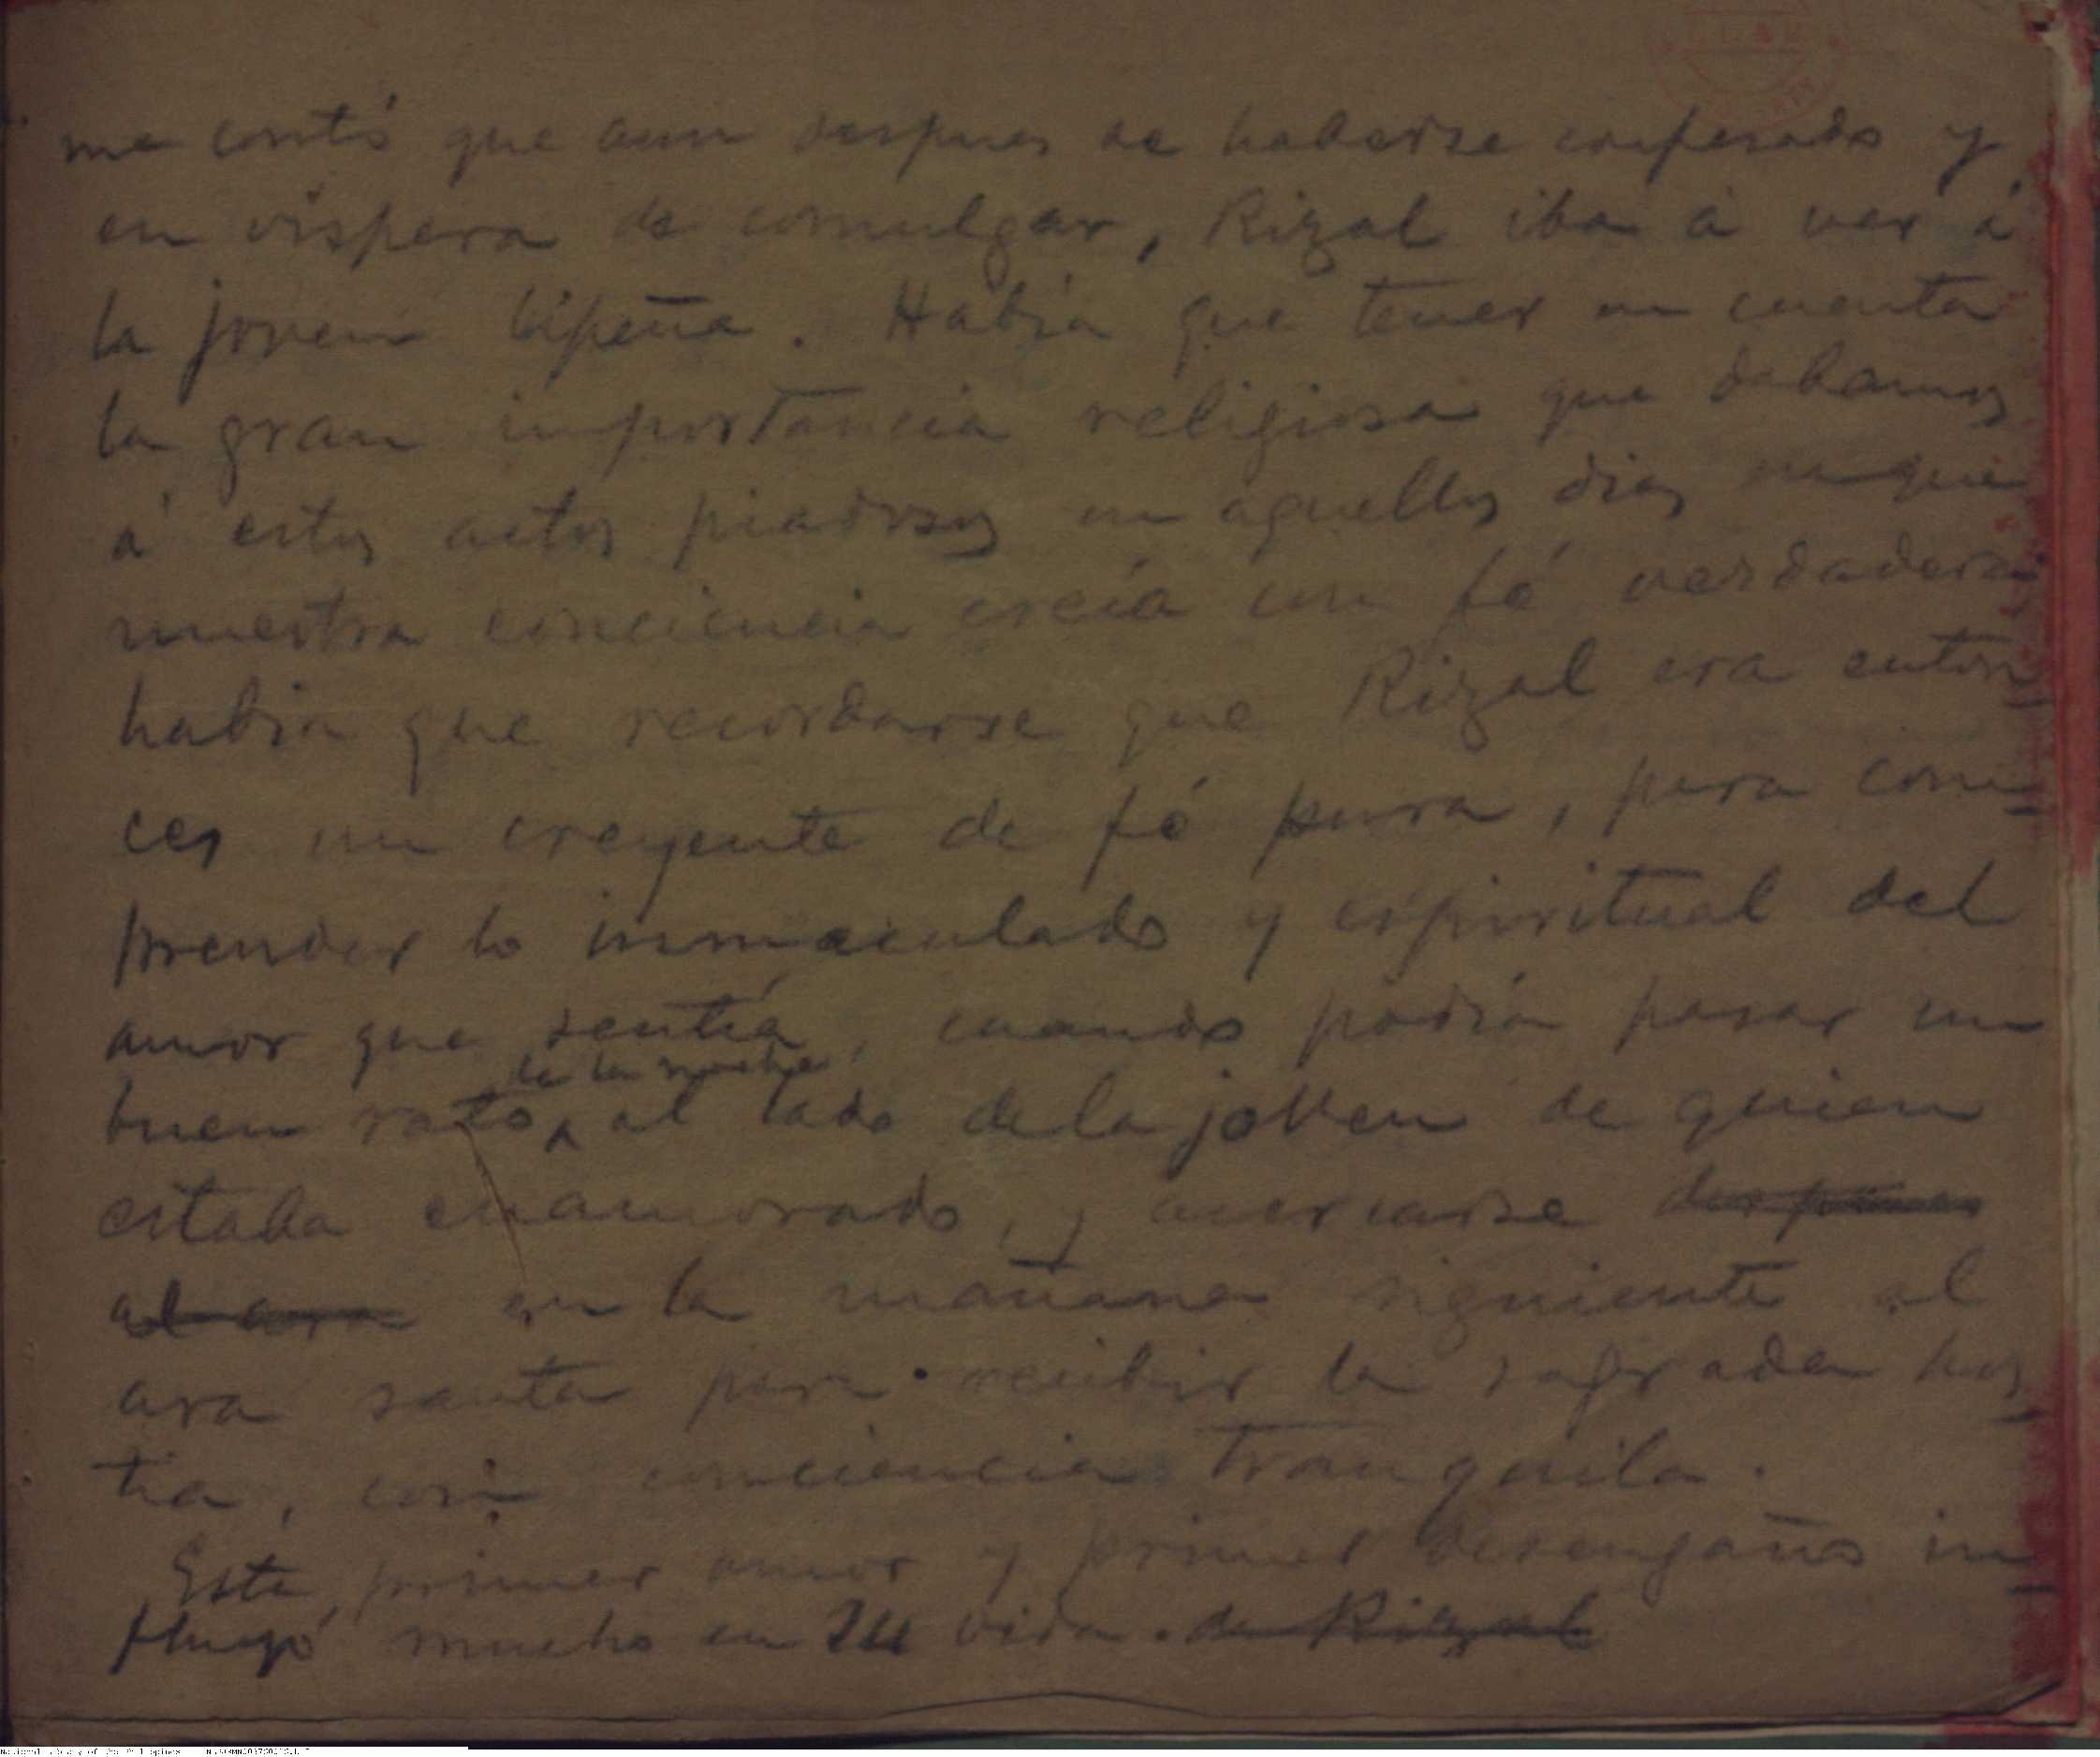 me contó que aun despues de haberse confesado y
en víspera de comulgar, Rizal iba á ver á
la joven lipeña. Había que tener en cuenta
la gran importancia religiosa que dabamos
á estos actos piadosos en aquellos dias en que
nuestra conciencia creía con fé verdadera;
habia que recordarse que Rizal era enton-
ces un creyente de fé pura, para com-
prender lo inmaculado y espiritual del
amor que sentía, cuando podía pasar un
de la noche
buen rato al lado de la joven de quien
estaba enamorado, y acercarse despues
al ara en la mañana siguiente al
ara santa para recibir la sagrada hos-
tia, con conciencia tranquila.
Este primer amor y primer desengaño in-
fluyó mucho en su vida. de Rizal